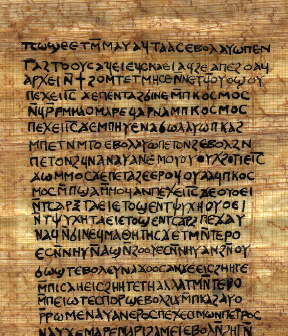 ⲧⲥⲱϣⲉ ⲉⲧⲙ̅ⲙⲁⲩ ⲁϥⲧⲁⲁⲥ ⲉⲃⲟⲗ ⲁⲩⲱ ⲡⲉⲛ
ⲧⲁϩⲧⲟⲟⲩⲥ ⲁϥⲉⲓ ⲉϥⲥⲕⲁⲉⲓ ⲁϥϩⲉ ⲁⲡⲉϩⲟ ⲁϥ
ⲁⲣⲭⲉⲓ ⲛ̅ϯ ϩⲟⲙⲧ ⲉⲧⲙⲏⲥⲉ ⲛⲛⲉⲧϥⲟⲩⲟϣⲟⲩ
ⲡⲉϫⲉ ⲓⲥ̅ ϫⲉ ⲡⲉⲛⲧⲁϩϭⲓⲛⲉ ⲙⲡⲕⲟⲥⲙⲟⲥ
ⲛ̅ϥⲣ̅ ⲣⲙⲙⲁⲟ ⲙⲁⲣⲉϥⲁⲣⲛⲁ ⲙⲡⲕⲟⲥⲙⲟⲥ
ⲡⲉϫⲉ ⲓⲥ̅ ϫⲉ ⲙⲡⲏⲩⲉ ⲛⲁϭⲱⲗ ⲁⲩⲱ ⲡⲕⲁϩ
ⲙⲡⲉⲧⲛ̅ⲙⲧⲟ ⲉⲃⲟⲗ ⲁⲩⲱ ⲡⲉⲧⲟⲛϩ ⲉⲃⲟⲗ ϩⲛ
ⲡⲉⲧⲟⲛϩ ϥⲛⲁⲛⲁⲩ ⲁⲛ ⲉⲙⲟⲩ ⲟⲩⲭϩⲟⲧⲓ ⲉⲓⲥ̅
ϫⲱ ⲙⲙⲟⲥ ϫⲉ ⲡⲉⲧⲁϩⲉ ⲉⲣⲟϥ ⲟⲩⲁⲁϥ ⲡⲕⲟⲥ
ⲙⲟⲥ ⲙ̅ⲡϣⲁ ⲙⲙⲟϥ ⲁⲛ ⲡⲉϫⲉ ⲓⲥ̅ ϫⲉ ⲟⲩⲟⲉⲓ
ⲛ̅ⲧⲥⲁⲣⲝ ⲧⲁⲉⲓ ⲉⲧⲟϣⲉ ⲛⲧⲯⲩⲭⲏ ⲟⲩⲟⲉⲓ
ⲛ̅ⲧⲯⲩⲭⲏ ⲧⲁⲉⲓ ⲉⲧⲟϣⲉ ⲛⲧⲥⲁⲣⲝ ⲡⲉϫⲁⲩ
ⲛⲁϥ ⲛϭⲓ ⲛⲉϥⲙⲁⲑⲏⲧⲏⲥ ϫⲉ ⲧⲙⲛ̅ⲧⲉⲣⲟ
ⲉⲥⲛ̅ⲛⲏⲩ ⲛⲁϣ ⲛϩⲟⲟⲩ ⲉⲥⲛⲛⲏⲩ ⲁⲛ ϩⲛ ⲟⲩ
ϭⲱϣⲧ ⲉⲃⲟⲗ ⲉⲩⲛⲁϫⲟⲟⲥ ⲁⲛ ϫⲉ ⲉⲓⲥ ϩⲏⲏⲧⲉ
ⲙⲡⲓⲥⲁ ⲏ ⲉⲓⲥ ϩⲏⲏⲧⲉ ⲧⲏ ⲁⲗⲗⲁ ⲧⲙⲛ̅ⲧⲉⲣⲟ
ⲙⲡⲉⲓⲱⲧ ⲉⲥⲡⲟⲣϣ ⲉⲃⲟⲗ ϩⲓϫⲙ ⲡⲕⲁϩ ⲁⲩⲱ
ⲣⲣⲱⲙⲉ ⲛⲁⲩ ⲁⲛ ⲉⲣⲟⲥ ⲡⲉϫⲉ ⲥⲓⲙⲱⲛ ⲡⲉⲧⲣⲟⲥ
ⲛⲁⲩ ϫⲉ ⲙⲁⲣⲉ ⲙⲁⲣⲓϩⲁⲙ ⲉⲓ ⲉⲃⲟⲗ ⲛ̅ϩⲏⲧⲛ̅